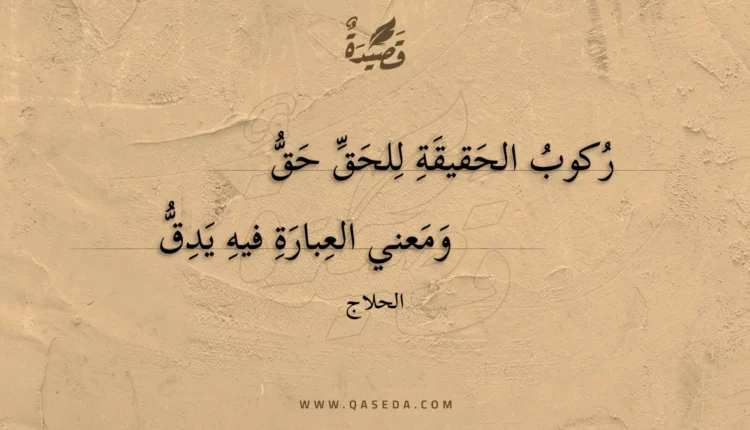 قَصِيْدَةٌ
رُكوبُ الحَقيقَةِ لِلحَقِّ حَقُّ
وَمَعني العِبارَةِ فيهِ يَدِقُّ
الحلاج
WWW.QASEDA.COM